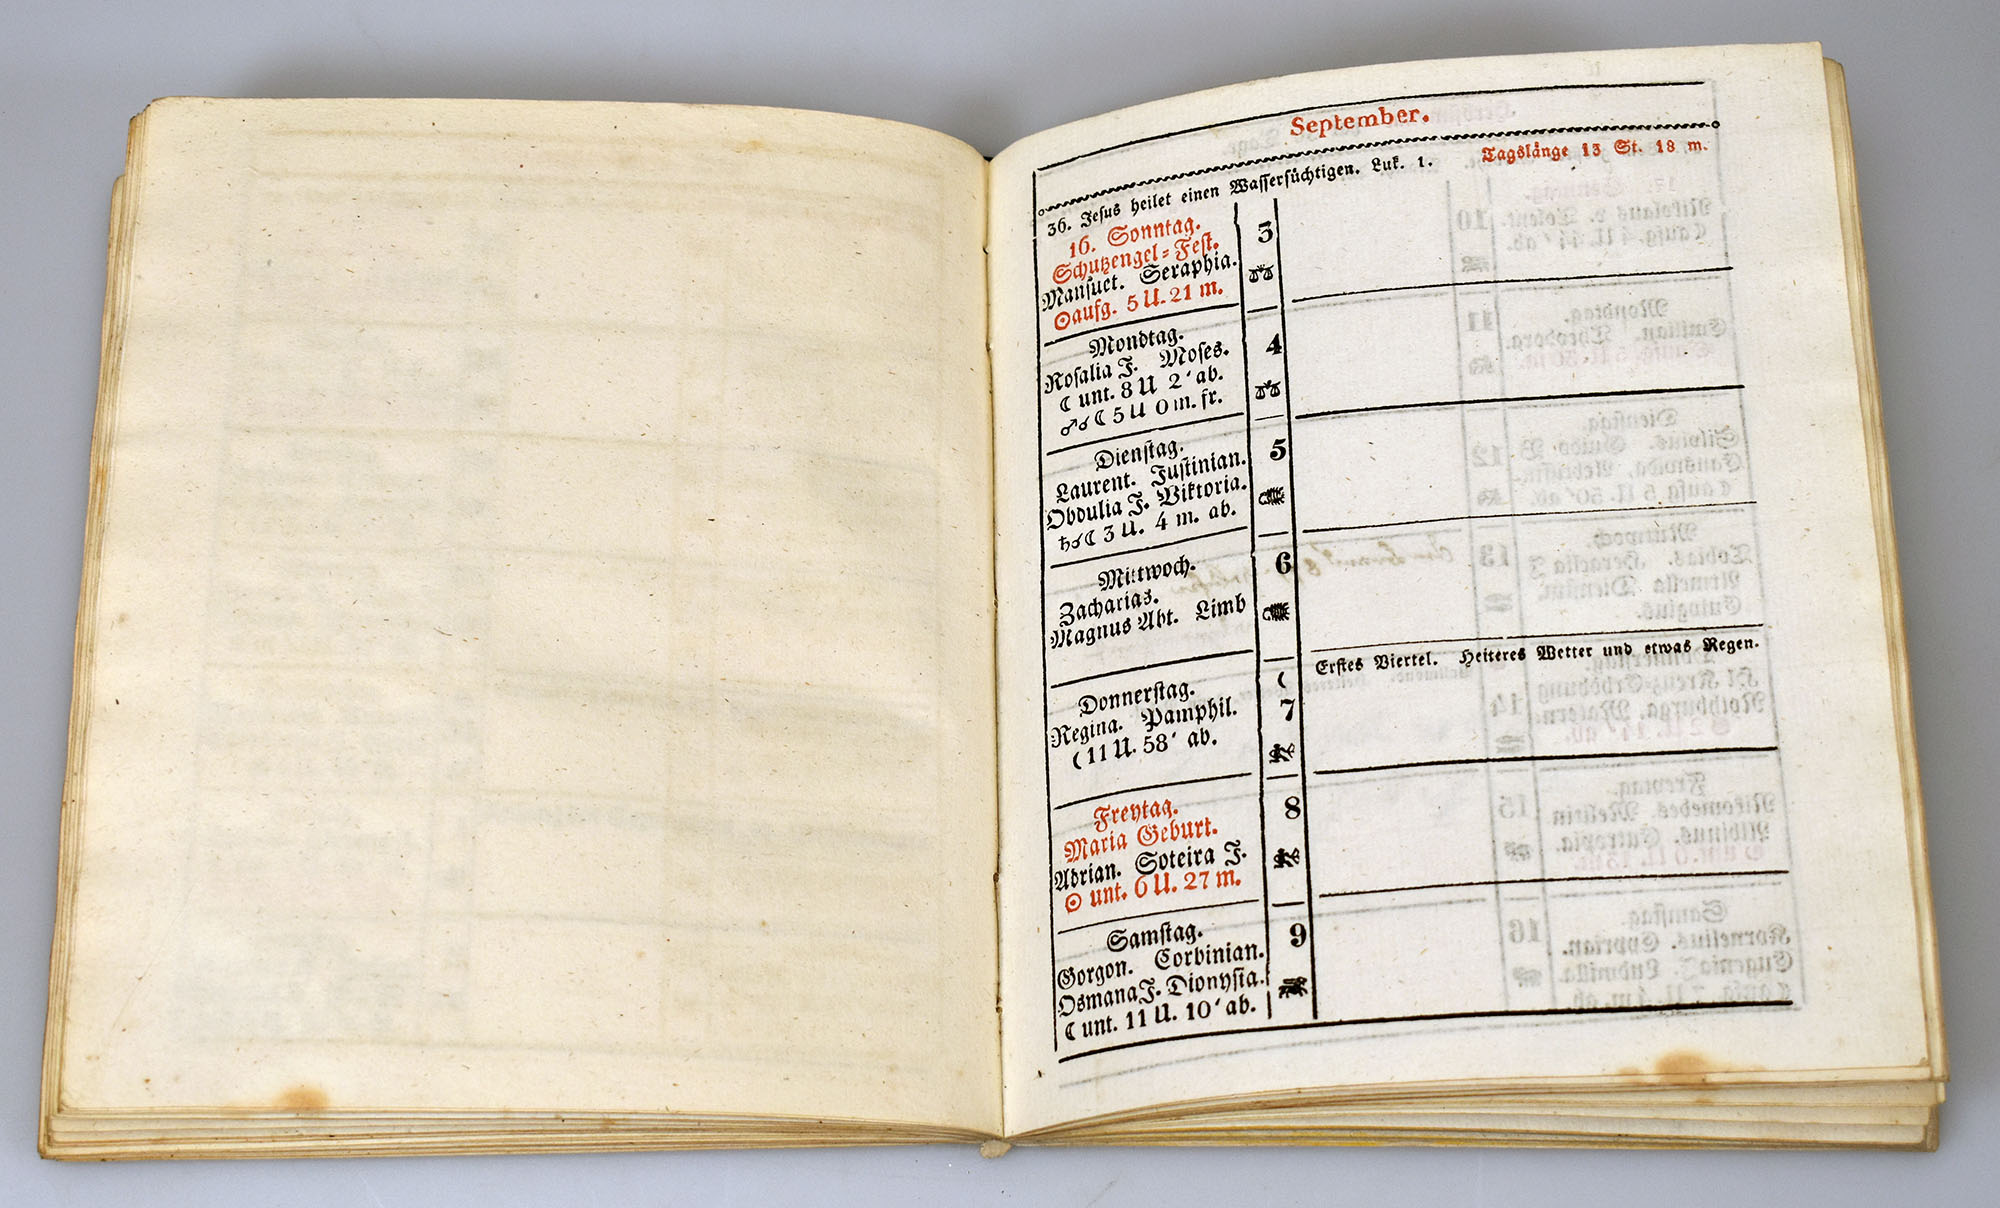 September.
36. Jesus heilet einen Wassersüchtigen. Luk. 1. Tagslänge 13 St. 18 m.
16. Sonntag.
Schutzengel-Fest.
Mansuet. Seraphia.
☉aufg. 5 U. 21 m.
3
♎
Mondtag.
Rosalia J. Moses.
☾ unt. 8 U 2′ ab.
♂☌☾ 5 U 0 m. fr.
4
♎
Dienstag.
Laurent. Justinian.
Obdulia J. Viktoria.
♄☌☾ 3 U. 4 m. ab.
5
♏
Mittwoch.
Zacharias.
Magnus Abt. Limb
6
♏
Erstes Viertel. Heiteres Wetter und etwas Regen.
Donnerstag.
Regina. Pamphil.
☾ 11 U. 58′ ab.
☾
7
♐
Freytag.
Maria Geburt.
Adrian. Soteira J.
☉ unt. 6 U. 27 m.
8
♐
Samstag.
Gorgon. Corbinian.
Osmana J. Dionysia.
☾ unt. 11 U. 10′ ab.
9
♑